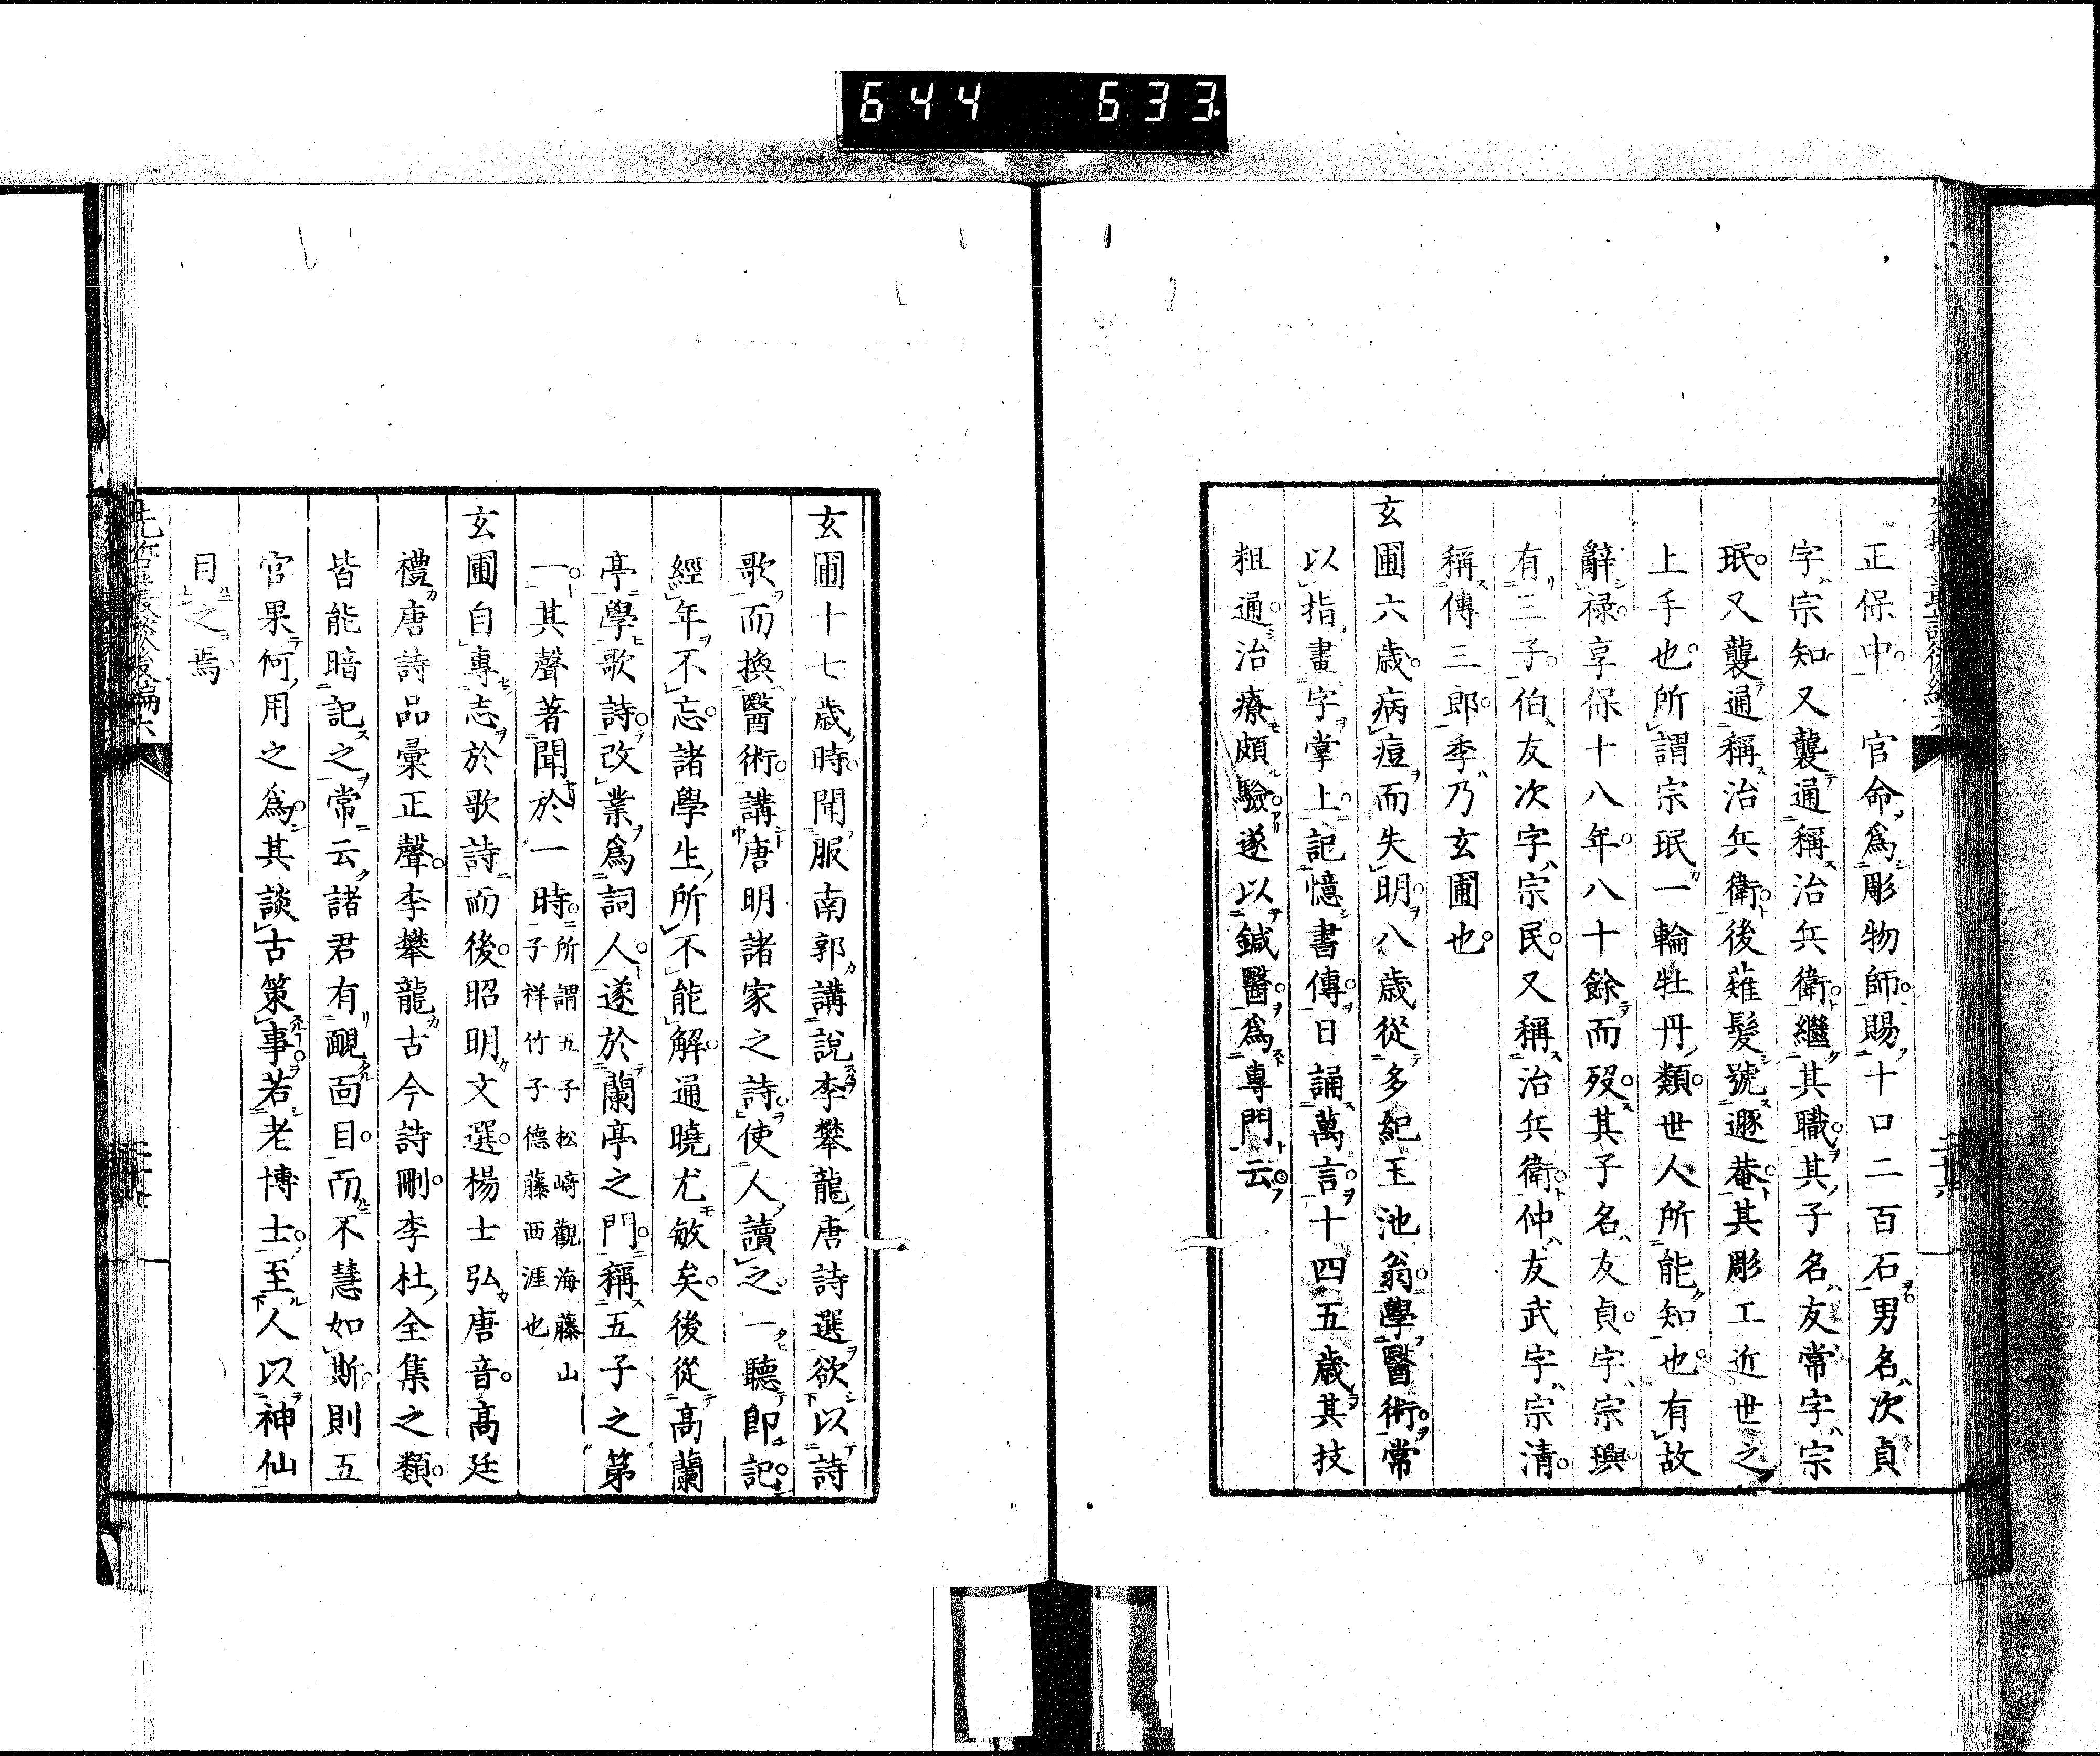 644 633
正保中 官命爲彫物師賜十口二百石男名次貞
字宗知又襲通稱治兵衛繼其職其子名友常字宗
珉又襲通稱治兵衛後薙髮號遯菴其彫工近世之
上手也所謂宗珉一輪牡丹類世人所能知也有故
辭祿享保十八年八十餘而歿其子名友貞字宗璵
有三子伯友次字宗民又稱治兵衛仲友武字宗清
稱傳三郎季乃玄圃也
玄圃六歲病痘而失明八歲從多紀玉池翁學醫術常
以指畫字掌上記憶書傳日誦萬言十四五歲其技
粗通治療頗驗遂以鍼醫爲專門云
玄圃十七歲時聞服南郭講說李攀龍唐詩選欲以詩
歌而換醫術講唐明諸家之詩使人讀之一聽卽記
經年不忘諸學生所不能解通曉尤敏矣後從高蘭
亭學歌詩改業爲詞人遂於蘭亭之門稱五子之第
一其聲著聞於一時所謂五子松﨑觀海藤山
子祥竹子德藤西涯也
玄圃自專志於歌詩而後昭明文選楊士弘唐音高廷
禮唐詩品彙正聲李攀龍古今詩刪李杜全集之類
皆能暗記之常云諸君有靦面目而不慧如斯則五
官果何用之爲其談古策事若老博士至人以神仙
目之焉
先哲叢談後編六